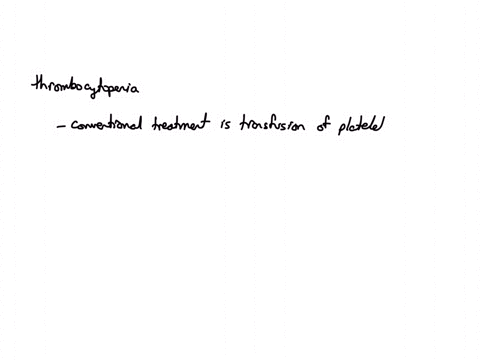 thrombocytopenia
- conventional treatment is transfusion of platelet